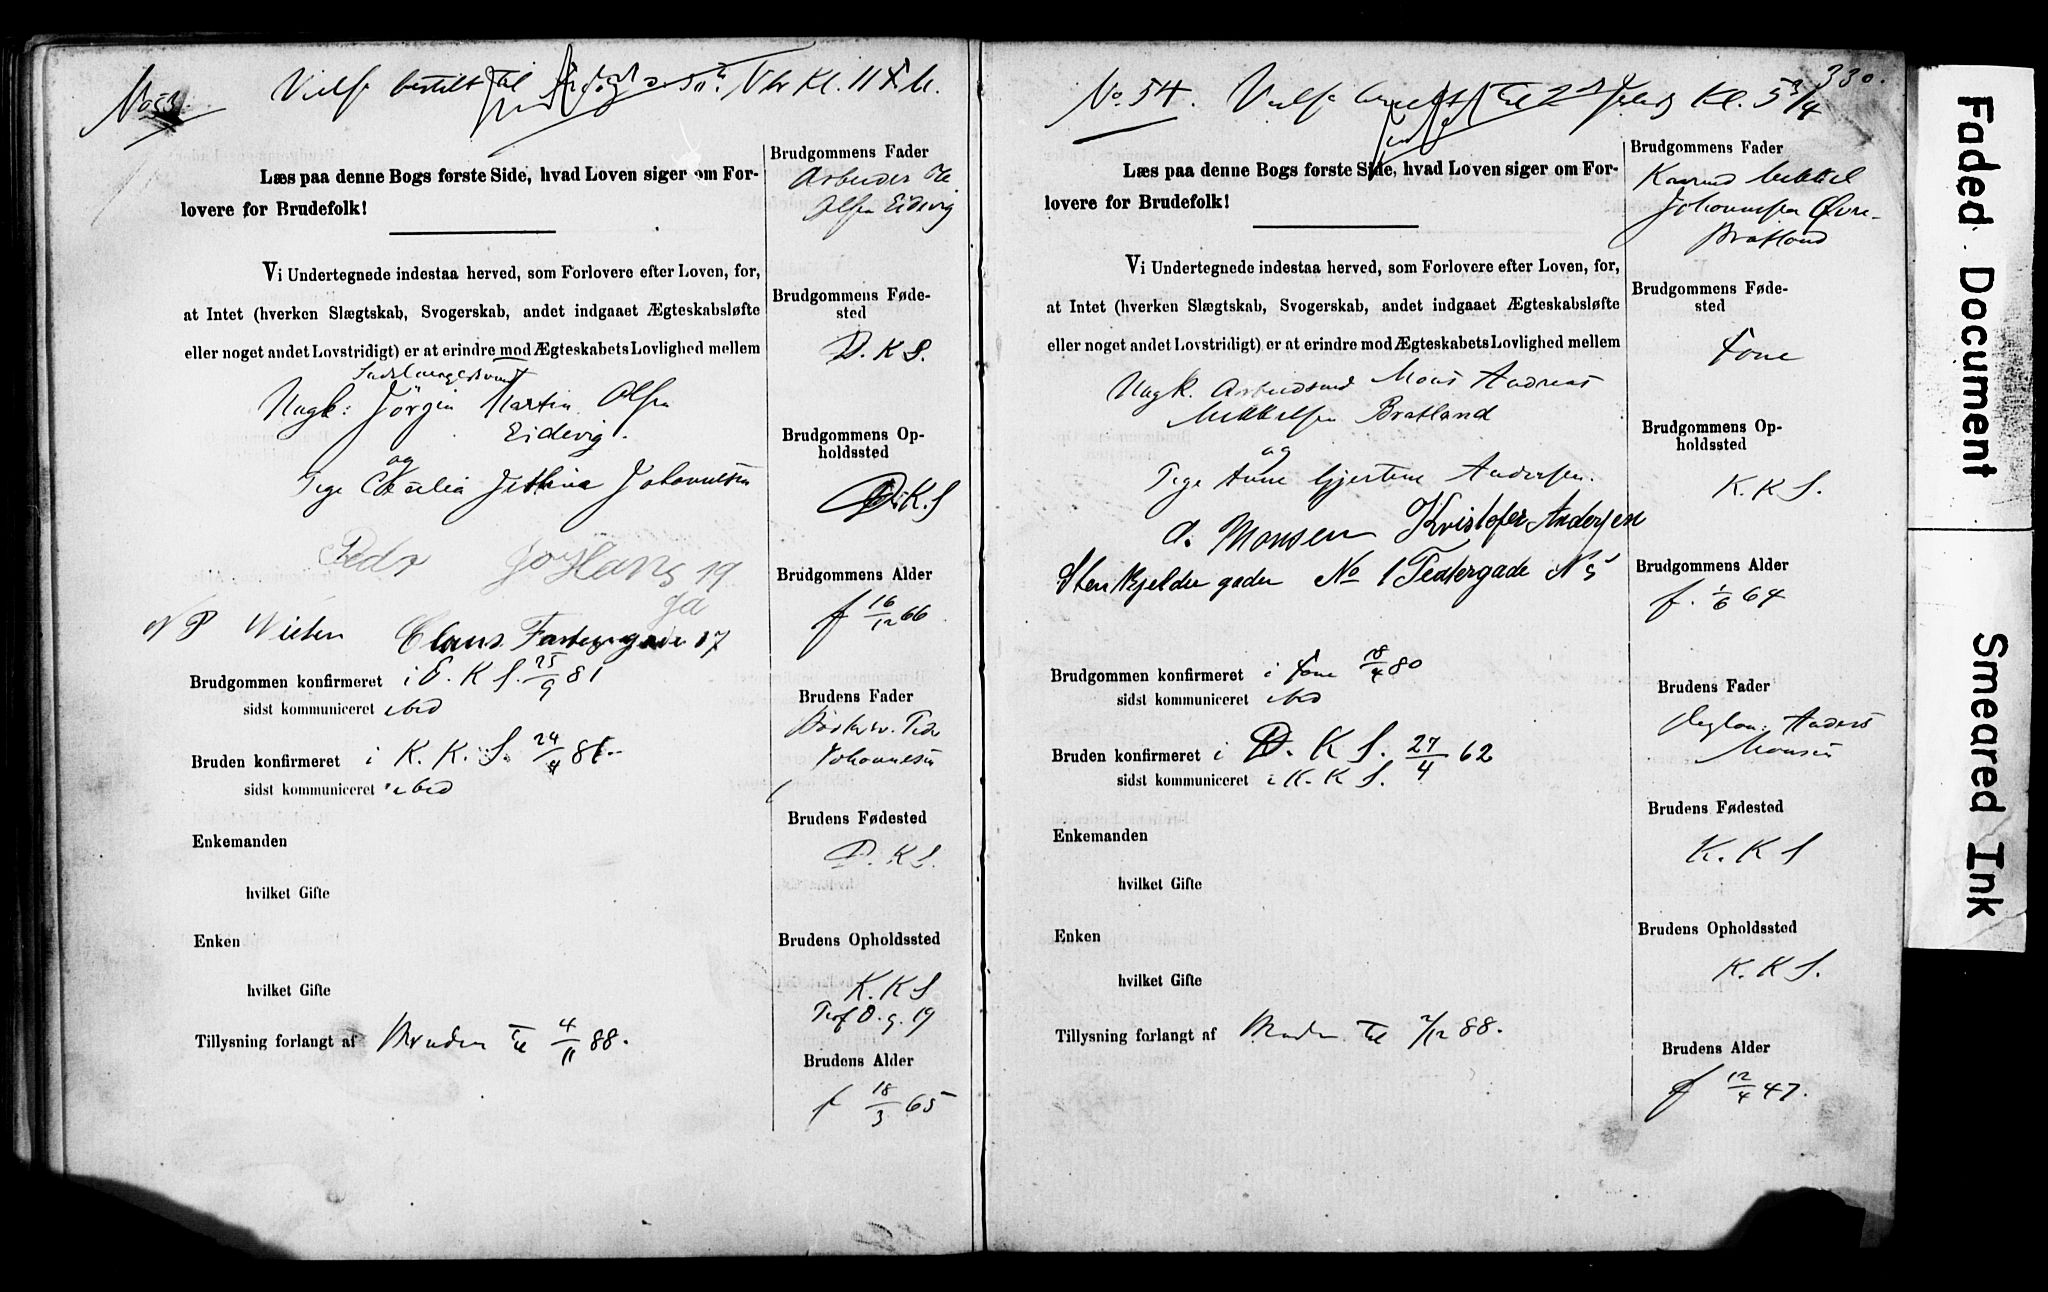 No 53. Vielse bestilt til Kl. 11
Læs paa denne Bogs første Side, hvad Loven siger om For-
lovere for Brudefolk!
Vi Undertegnede indestaa herved, som Forlovere efter Loven, for,
at Intet (hverken Slægtskab, Svogerskab, andet indgaaet Ægteskabsløfte
eller noget andet Lovstridigt) er at erindre mod Ægteskabets Lovlighed mellem
Ungk: Jörgin Martin Olsen
Eidevig.
og
Pige Cecilia Johannesen
Pedr Johans 19
Claus 17
Brudgommen konfirmeret i E. K S. 25/9 81
sidst kommuniceret ibid
Bruden konfirmeret i K. K. S. 24/4 81.
sidst kommuniceret ibid
Enkemanden
hvilket Gifte
Enken
hvilket Gifte
Tillysning forlangt af Bruden til 4/11 88.
Brudgommens Fader
Arbeider Ole
Olsen Eidevig
Brudgommens Føde-
sted
D. K S.
Brudgommens Op-
holdssted
D. K. S
Brudgommens Alder
f 16/12 66
Brudens Fader
Bödker Peder
Johannesen
Brudens Fødested
D. K S.
Brudens Opholdssted
K. K S
19
Brudens Alder
f 18/3 65
330.
No. 54. Vielse til Kl. 5 3/4
Læs paa denne Bogs første Side, hvad Loven siger om For-
lovere for Brudefolk!
Vi Undertegnede indestaa herved, som Forlovere efter Loven, for,
at Intet (hverken Slægtskab, Svogerskab, andet indgaaet Ægteskabsløfte
eller noget andet Lovstridigt) er at erindre mod Ægteskabets Lovlighed mellem
Ungk. Arbeidsmd Mons Andreas
Mikkelsen Bratland
og
Pige Anne Gjertine Andersen.
A. Monsen Kristofer Andersen
Stenkjelder gaden No 1 N 5
Brudgommen konfirmeret i Fane 18/4 80
sidst kommuniceret ibid
Bruden konfirmeret i D. K S. 27/4 62
sidst kommuniceret i K. K S.
Enkemanden
hvilket Gifte
Enken
hvilket Gifte
Tillysning forlangt af Bruden til 2/12 88.
Brudgommens Fader
Mikkel
Johannesen Øvre-
Bratland
Brudgommens Føde-
sted
Fane
Brudgommens Op-
holdssted
K. K S.
Brudgommens Alder
f. 1/6 64
Brudens Fader
Anders
Monsen
Brudens Fødested
K. K S
Brudens Opholdssted
K. K S.
Brudens Alder
f 12/4 47.
Faded Document
Smeared Ink